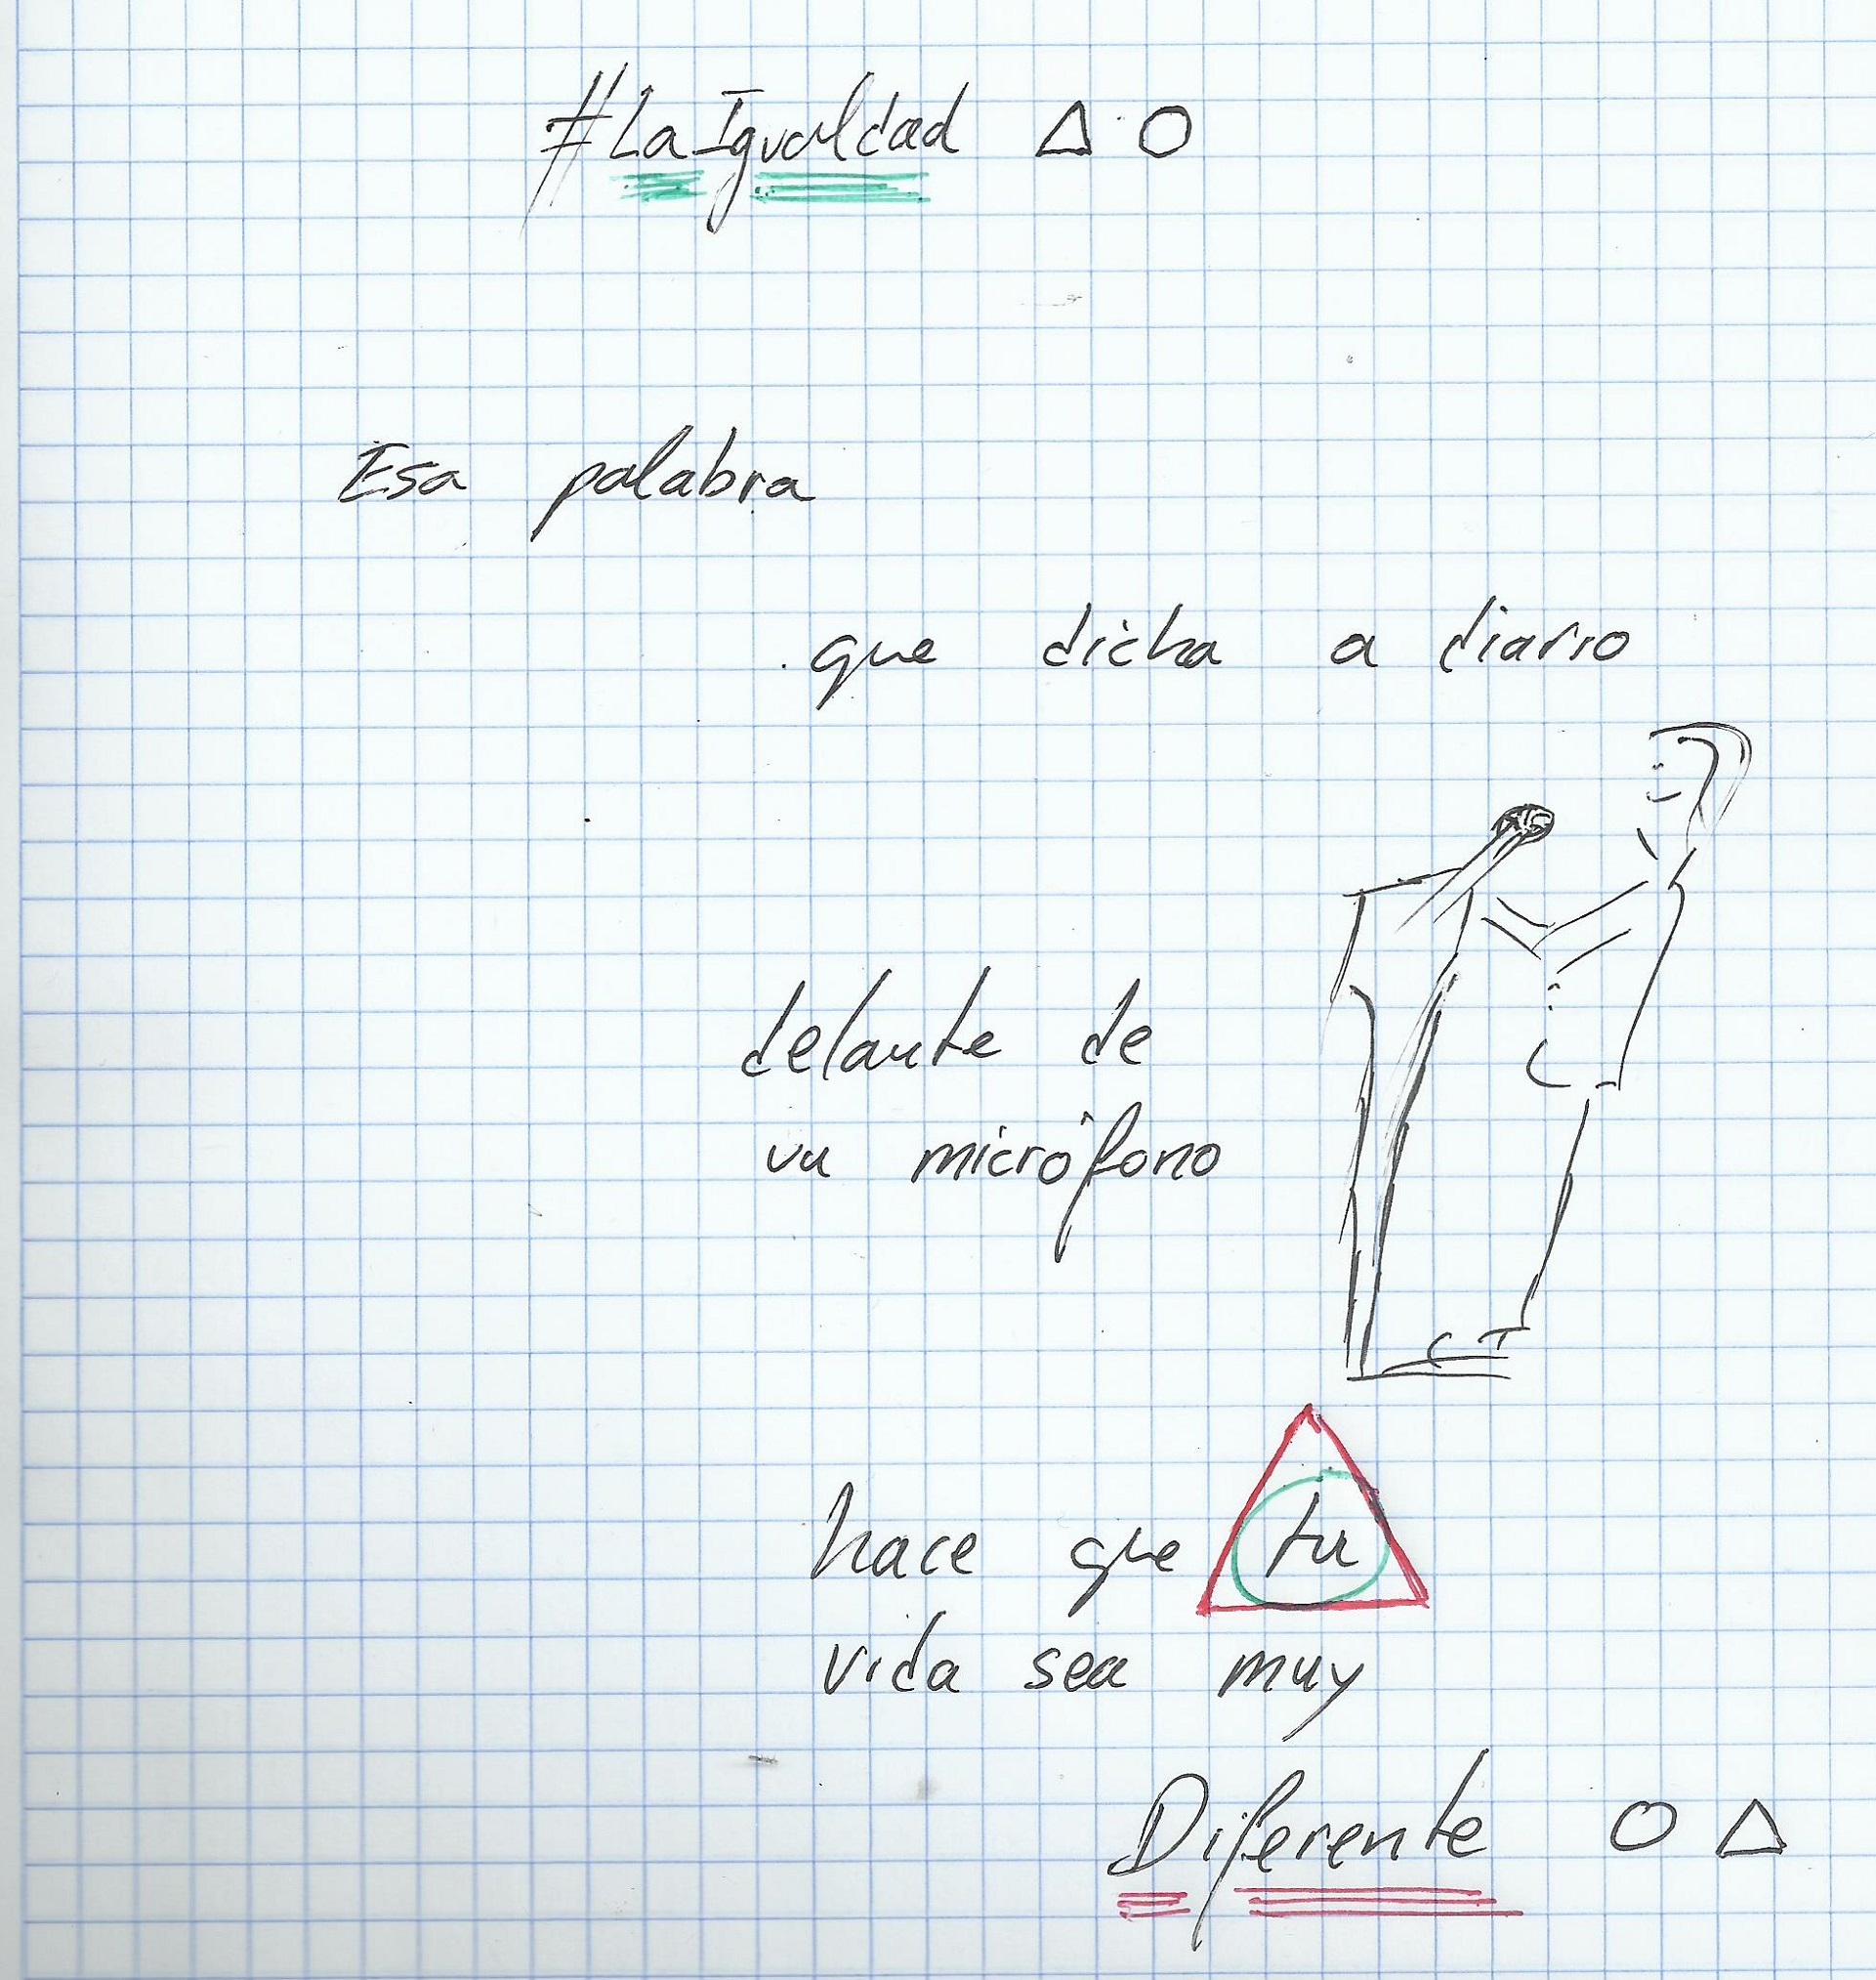 #LaIgualdad △ ○
Esa palabra
que dicha a diario
delante de
un micrófono
hace que tu
vida sea muy
Diferente ○ △